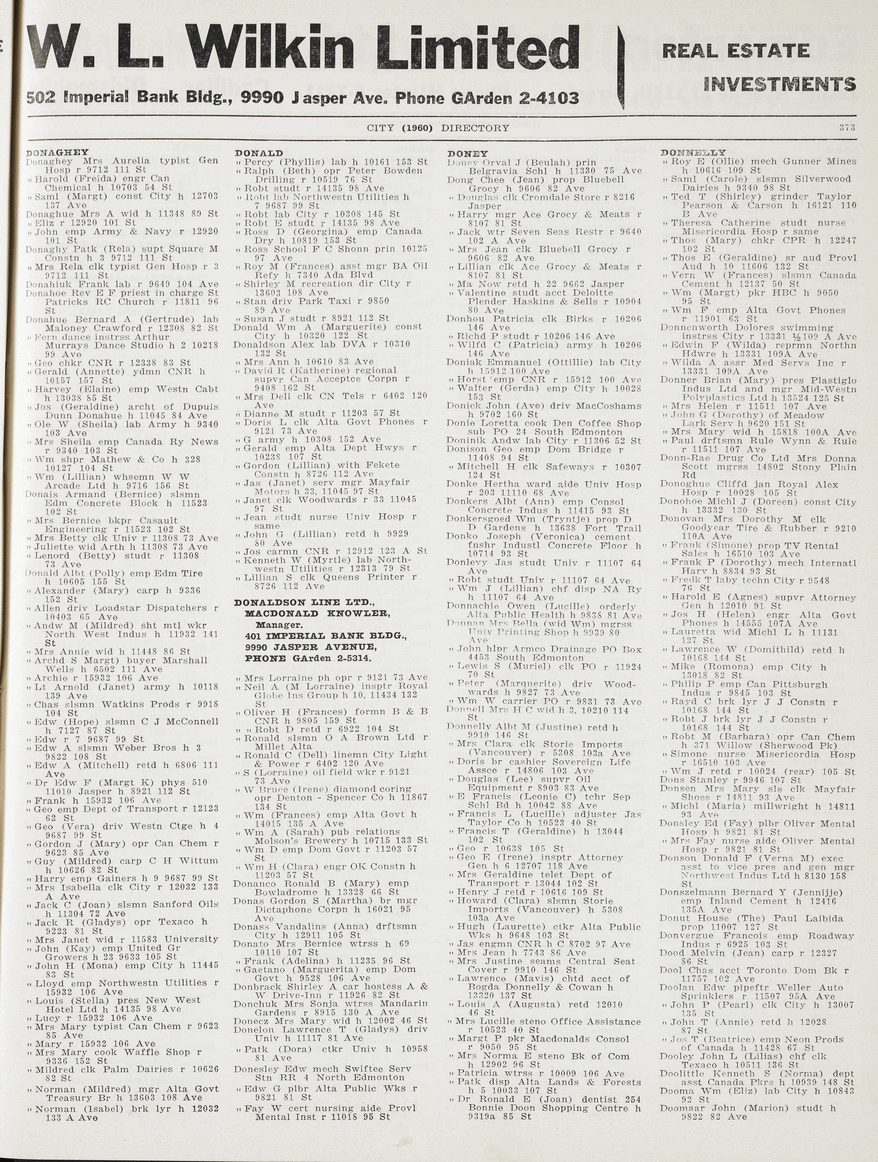 W. L. Wilkin Limited
502 Imperial Bank Bldg., 9990 Jasper Ave. Phone GArden 2-4103
REAL ESTATE
INVESTMENTS
CITY (1960) DIRECTORY
373
DONAGHEY
Donaghey Mrs Aurelia typist Gen
Hosp r 9712 111 St
" Harold (Freida) engr Can
Chemical h 10703 54 St
" Saml (Margt) const City h 12703
137 Ave
Donaghue Mrs A wid h 11348 89 St
" Eliz r 12920 101 St
" John emp Army & Navy r 12920
101 St
Donaghy Patk (Rela) supt Square M
Constn h 3 9712 111 St
" Mrs Rela clk typist Gen Hosp r 3
9712 111 St
Donahiuk Frank lab r 9649 104 Ave
Donahoe Rev E F priest in charge St
Patricks RC Church r 11811 96
St
Donahue Bernard A (Gertrude) lab
Maloney Crawford r 12308 82 St
" Fern dance instrss Arthur
Murrays Dance Studio h 2 10218
99 Ave
" Geo chkr CNR r 12338 83 St
" Gerald (Annette) ydmn CNR h
10157 157 St
" Harvey (Elaine) emp Westn Cabt
h 13038 85 St
" Jos (Geraldine) archt of Dupuis
Dunn Donahue h 11045 84 Ave
" Ole W (Sheila) lab Army h 9340
103 Ave
" Mrs Sheila emp Canada Ry News
r 9340 103 St
" Wm shpr Mathew & Co h 328
10127 104 St
" Wm (Lillian) whsemn W W
Arcade Ltd h 9716 156 St
Donais Armand (Bernice) slsmn
Edm Concrete Block h 11523
102 St
" Mrs Bernice bkpr Casault
Engineering r 11523 102 St
" Mrs Betty clk Univ r 11308 73 Ave
" Juliette wid Arth h 11308 73 Ave
" Lenord (Betty) studt r 11308
73 Ave
Donald Albt (Polly) emp Edm Tire
h 10605 155 St
" Alexander (Mary) carp h 9336
152 St
" Allen driv Loadstar Dispatchers r
10403 65 Ave
" Andw M (Mildred) sht mtl wkr
North West Indus h 11932 141
St
" Mrs Annie wid h 11448 86 St
" Archd S Margt) buyer Marshall
Wells h 6502 111 Ave
" Archie r 15932 106 Ave
" Lt Arnold (Janet) army h 10118
139 Ave
" Chas slsmn Watkins Prods r 9918
104 St
" Edw (Hope) slsmn C J McConnell
h 7127 87 St
" Edw r 7 9687 99 St
" Edw A slsmn Weber Bros h 3
9822 108 St
" Edw A (Mitchell) retd h 6806 111
Ave
" Dr Edw F (Margt K) phys 510
11010 Jasper h 8921 112 St
" Frank h 15932 106 Ave
" Geo emp Dept of Transport r 12123
62 St
" Geo (Vera) driv Westn Ctge h 4
9687 99 St
" Gordon J (Mary) opr Can Chem r
9623 85 Ave
" Guy (Mildred) carp C H Wittum
h 10626 82 St
" Harry emp Gainers h 9 9687 99 St
" Mrs Isabella clk City r 12032 133
A Ave
" Jack C (Joan) slsmn Sanford Oils
h 11304 72 Ave
" Jack R (Gladys) opr Texaco h
9223 81 St
" Mrs Janet wid r 11583 University
" John (Kay) emp United Gr
Growers h 23 9633 105 St
" John H (Mona) emp City h 11445
83 St
" Lloyd emp Northwestn Utilities r
15932 106 Ave
" Louis (Stella) pres New West
Hotel Ltd h 14135 98 Ave
" Lucy r 15932 106 Ave
" Mrs Mary typist Can Chem r 9623
85 Ave
" Mary r 15932 106 Ave
" Mrs Mary cook Waffle Shop r
9336 152 St
" Mildred clk Palm Dairies r 10626
82 St
" Norman (Mildred) mgr Alta Govt
Treasury Br h 13603 108 Ave
" Norman (Isabel) brk lyr h 12032
133 A Ave
DONALD
" Percy (Phyllis) lab h 10161 153 St
" Ralph (Beth) opr Peter Bowden
Drilling r 10519 76 St
" Robt studt r 14135 98 Ave
" Robt lab Northwestn Utilities h
7 9687 99 St
" Robt lab City h 10308 145 St
" Robt E studt r 14135 98 Ave
" Ross D (Georgina) emp Canada
Dry h 10819 153 St
" Ross School F C Shonn prin 10125
97 Ave
" Roy M (Frances) asst mgr BA Oil
Refy h 7340 Ada Blvd
" Shirley M recreation dir City r
13603 108 Ave
" Stan driv Park Taxi r 9850
89 Ave
" Susan J studt r 8921 112 St
Donald Wm A (Marguerite) const
City h 10320 122 St
Donaldson Alex lab DVA r 10310
132 St
" Mrs Ann h 10610 83 Ave
" David R (Katherine) regional
supvr Can Acceptce Corpn r
9408 162 St
" Mrs Dell clk CN Tels r 6402 120
Ave
" Dianne M studt r 11203 57 St
" Doris L clk Alta Govt Phones r
9121 73 Ave
" G army h 10308 152 Ave
" Gerald emp Alta Dept Hwys r
10238 107 St
" Gordon (Lillian) with Fekete
Constn h 8726 112 Ave
" Jas (Janet) serv mgr Mayfair
Motors h 33, 11045 97 St
" Janet clk Woodwards r 33 11045
97 St
" Jean studt nurse Univ Hosp r
same
" John G (Lillian) retd h 9929
80 Ave
" Jos carmn CNR r 12912 123 A St
" Kenneth W (Myrtle) lab North-
westn Utilities r 12313 79 St
" Lillian S clk Queens Printer r
8726 112 Ave
DONALDSON LINE LTD.,
MACDONALD KNOWLER,
Manager.
401 IMPERIAL BANK BLDG.,
9990 JASPER AVENUE,
PHONE GArden 2-5314.
" Mrs Lorraine ph opr r 9121 73 Ave
" Neil A (M Lorraine) insptr Royal
Globe Ins Group h 10, 11434 132
St
" Oliver H (Frances) formn B & B
CNR h 9805 159 St
" " Robt D retd r 6922 104 St
" Ronald slsmn O A Brown Ltd r
Millet Alta
" Ronald C (Dell) linemn City Light
& Power r 6402 120 Ave
" S (Lorraine) oil field wkr r 9121
73 Ave
" W Bruce (Irene) diamond coring
opr Denton - Spencer Co h 11867
134 St
" Wm (Frances) emp Alta Govt h
14015 135 A Ave
" Wm A (Sarah) pub relations
Molson's Brewery h 10715 133 St
" Wm D emp Dom Govt r 11203 57
St
" Wm H (Clara) engr OK Constn h
11203 57 St
Donanco Ronald B (Mary) emp
Bowladrome h 13328 66 St
Donas Gordon S (Martha) br mgr
Dictaphone Corpn h 16021 95
Ave
Donass Vandalins (Anna) drftsmn
City h 12911 105 St
Donato Mrs Bernice wtrss h 69
10110 107 St
" Frank (Adelina) h 11235 96 St
" Gaetano (Marguerita) emp Dom
Govt h 9528 106 Ave
Donbrack Shirley A car hostess A &
W Drive-Inn r 11926 82 St
Donchuk Mrs Sonja wtrss Mandarin
Gardens r 8915 130 A Ave
Donecz Mrs Mary wid h 12002 46 St
Donelon Lawrence T (Gladys) driv
Univ h 11117 81 Ave
" Patk (Dora) ctkr Univ h 10958
81 Ave
Donesley Edw mech Swiftee Serv
Stn RR 4 North Edmonton
" Edw G plbr Alta Public Wks r
9821 81 St
" Fay W cert nursing aide Provl
Mental Inst r 11018 95 St
DONEY
Doney Orval J (Beulah) prin
Belgravia Schl h 11330 75 Ave
Dong Chee (Jean) prop Bluebell
Grocy h 9606 82 Ave
" Douglas clk Cromdale Store r 8216
Jasper
" Harry mgr Ace Grocy & Meats r
8107 81 St
" Jack wtr Seven Seas Restr r 9640
102 A Ave
" Mrs Jean clk Bluebell Grocy r
9606 82 Ave
" Lillian clk Ace Grocy & Meats r
8107 81 St
" Ma Now retd h 22 9662 Jasper
" Valentine studt acct Deloitte
Plender Haskins & Sells r 10904
80 Ave
Donhou Patricia clk Birks r 10206
146 Ave
" Richd P studt r 10206 146 Ave
" Wilfd C (Patricia) army h 10206
146 Ave
Doniak Emmanuel (Ottillie) lab City
h 15912 100 Ave
" Horst emp CNR r 15912 100 Ave
" Walter (Gerda) emp City h 10028
153 St
Donick John (Ave) driv MacCoshams
h 9702 160 St
Donie Loretta cook Den Coffee Shop
sub PO 24 South Edmonton
Doninik Andw lab City r 11306 52 St
Donison Geo emp Dom Bridge r
11408 94 St
" Mitchell H clk Safeways r 10307
124 St
Donke Hertha ward aide Univ Hosp
r 203 11110 68 Ave
Donkers Albt (Ann) emp Consol
Concrete Indus h 11415 93 St
Donkersgoed Wm (Tryntje) prop D
D Gardens h 13638 Fort Trail
Donko Joseph (Veronica) cement
fnshr Industl Concrete Floor h
10714 93 St
Donlevy Jas studt Univ r 11107 64
Ave
" Robt studt Univ r 11107 64 Ave
" Wm J (Lillian) chf disp NA Ry
h 11107 64 Ave
Donnachie Owen (Lucille) orderly
Alta Public Health h 9838 81 Ave
Donnan Mrs Bella (wid Wm) mgrss
Univ Printing Shop h 9939 80
Ave
" John hlpr Armco Drainage PO Box
4453 South Edmonton
" Lewis S (Muriel) clk PO r 11924
70 St
" Peter (Marquerite) driv Wood-
wards h 9827 73 Ave
" Wm W carrier PO r 9831 73 Ave
Donnell Mrs H C wid h 3, 10210 114
St
Donnelly Albt M (Justine) retd h
9910 146 St
" Mrs Clara clk Storie Imports
(Vancouver) r 5308 103a Ave
" Doris br cashier Sovereign Life
Assce r 14806 103 Ave
" Douglas (Lee) supvr Oil
Equipment r 8903 83 Ave
" E Francis (Leonie C) tchr Sep
Schl Bd h 10042 88 Ave
" Francis L (Lucille) adjuster Jas
Taylor Co h 10523 40 St
" Francis T (Geraldine) h 13044
102 St
" Geo r 10638 105 St
" Geo E (Irene) insptr Attorney
Gen h 6 12707 118 Ave
" Mrs Geraldine telet Dept of
Transport r 13044 102 St
" Henry J retd r 10616 109 St
" Howard (Clara) slsmn Storie
Imports (Vancouver) h 5308
103a Ave
" Hugh (Laurette) clkr Alta Public
Wks h 9648 103 St
" Jas engmn CNR h C 8702 97 Ave
" Mrs Jean h 7743 86 Ave
" Mrs Justine seams Central Seat
Cover r 9910 146 St
" Lawrence (Mavis) chtd acct of
Bogda Donnelly & Cowan h
13320 137 St
" Louis A (Augusta) retd 12010
46 St
" Mrs Lucille steno Office Assistance
r 10523 40 St
" Margt P pkr Macdonalds Consol
r 9050 95 St
" Mrs Norma E steno Bk of Com
h 12902 96 St
" Patricia wtrss r 10009 106 Ave
" Patk disp Alta Lands & Forests
h 5 10033 107 St
" Dr Ronald E (Joan) dentist 254
Bonnie Doon Shopping Centre h
9319a 85 St
DONNELLY
" Roy E (Ollie) mech Gunner Mines
h 10616 109 St
" Saml (Carole) slsmn Silverwood
Dairies h 9340 98 St
" Ted T (Shirley) grinder Taylor
Pearson & Carson h 16121 110
B Ave
" Theresa Catherine studt nurse
Misericordia Hosp r same
" Thos (Mary) chkr CPR h 12247
102 St
" Thos E (Geraldine) sr aud Provl
Aud h 10 11606 132 St
" Vern W (Frances) slsmn Canada
Cement h 12137 50 St
" Wm (Margt) pkr HBC h 9050
95 St
" Wm F emp Alta Govt Phones
r 11901 63 St
Donnenworth Dolores swimming
instrss City r 13331 ½109 A Ave
" Edwin F (Wilda) reprmn Northn
Hdwre h 13331 109A Ave
" Wilda A assr Med Servs Inc r
13331 109A Ave
Donner Brian (Mary) pres Plastiglo
Indus Ltd and mgr Mid-Westn
Polyplastics Ltd h 13524 125 St
" Mrs Helen r 11511 107 Ave
" John G (Dorothy) of Meadow
Lark Serv h 9620 151 St
" Mrs Mary wid h 15818 100A Ave
" Paul drftsmn Rule Wynn & Rule
r 11511 107 Ave
Donn-Rae Drug Co Ltd Mrs Donna
Scott mgrss 14802 Stony Plain
Rd
Donoghue Cliffd jan Royal Alex
Hosp r 10028 105 St
Donohoe Michl J (Doreen) const City
h 13332 130 St
Donovan Mrs Dorothy M clk
Goodyear Tire & Rubber r 9210
110A Ave
" Frank (Simone) prop TV Rental
Sales h 16510 103 Ave
" Frank P (Dorothy) mech Internatl
Harv h 8834 93 St
" Fredk T laby techn City r 9548
76 St
" Harold E (Agnes) supvr Attorney
Gen h 12010 91 St
" Jos H (Helen) engr Alta Govt
Phones h 14555 107A Ave
" Lauretta wid Michl L h 11131
127 St
" Lawrence W (Domithild) retd h
10168 144 St
" Mike (Romona) emp City h
13018 82 St
" Philip P emp Can Pittsburgh
Indus r 9845 103 St
" Rayd C brk lyr J J Constn r
10168 144 St
" Robt J brk lyr J J Constn r
10168 144 St
" Robt M (Barbara) opr Can Chem
h 371 Willow (Sherwood Pk)
" Simone nurse Misericordia Hosp
r 16510 103 Ave
" Wm J retd r 10024 (rear) 105 St
Dons Stanley r 9946 107 St
Donsen Mrs Mary sls clk Mayfair
Shoes r 14811 93 Ave
" Michl (Maria) millwright h 14811
93 Ave
Donsley Ed (Fay) plbr Oliver Mental
Hosp h 9821 81 St
" Mrs Fay nurse aide Oliver Mental
Hosp r 9821 81 St
Donson Donald F (Verna M) exec
asst to vice pres and gen mgr
Northwest Indus Ltd h 8130 158
St
Donszelmann Bernard Y (Jennijje)
emp Inland Cement h 12416
135A Ave
Donut House (The) Paul Laibida
prop 11007 127 St
Donvergue Francois emp Roadway
Indus r 6925 103 St
Dood Melvin (Jean) carp r 12327
86 St
Dool Chas acct Toronto Dom Bk r
11757 102 Ave
Doolan Edw pipeftr Weller Auto
Sprinklers r 11507 95A Ave
" John P (Pearl) clk City h 13007
135 St
" John T (Annie) retd h 12028
87 St
" Jos T (Beatrice) emp Neon Prods
of Canada h 11428 67 St
Dooley John L (Lilias) chf clk
Texaco h 10511 136 St
Doolittle Kenneth S (Norma) dept
asst Canada Pkrs h 10939 148 St
Dooma Wm (Eliz) lab City h 10843
92 St
Doomaar John (Marion) studt h
9822 82 Ave